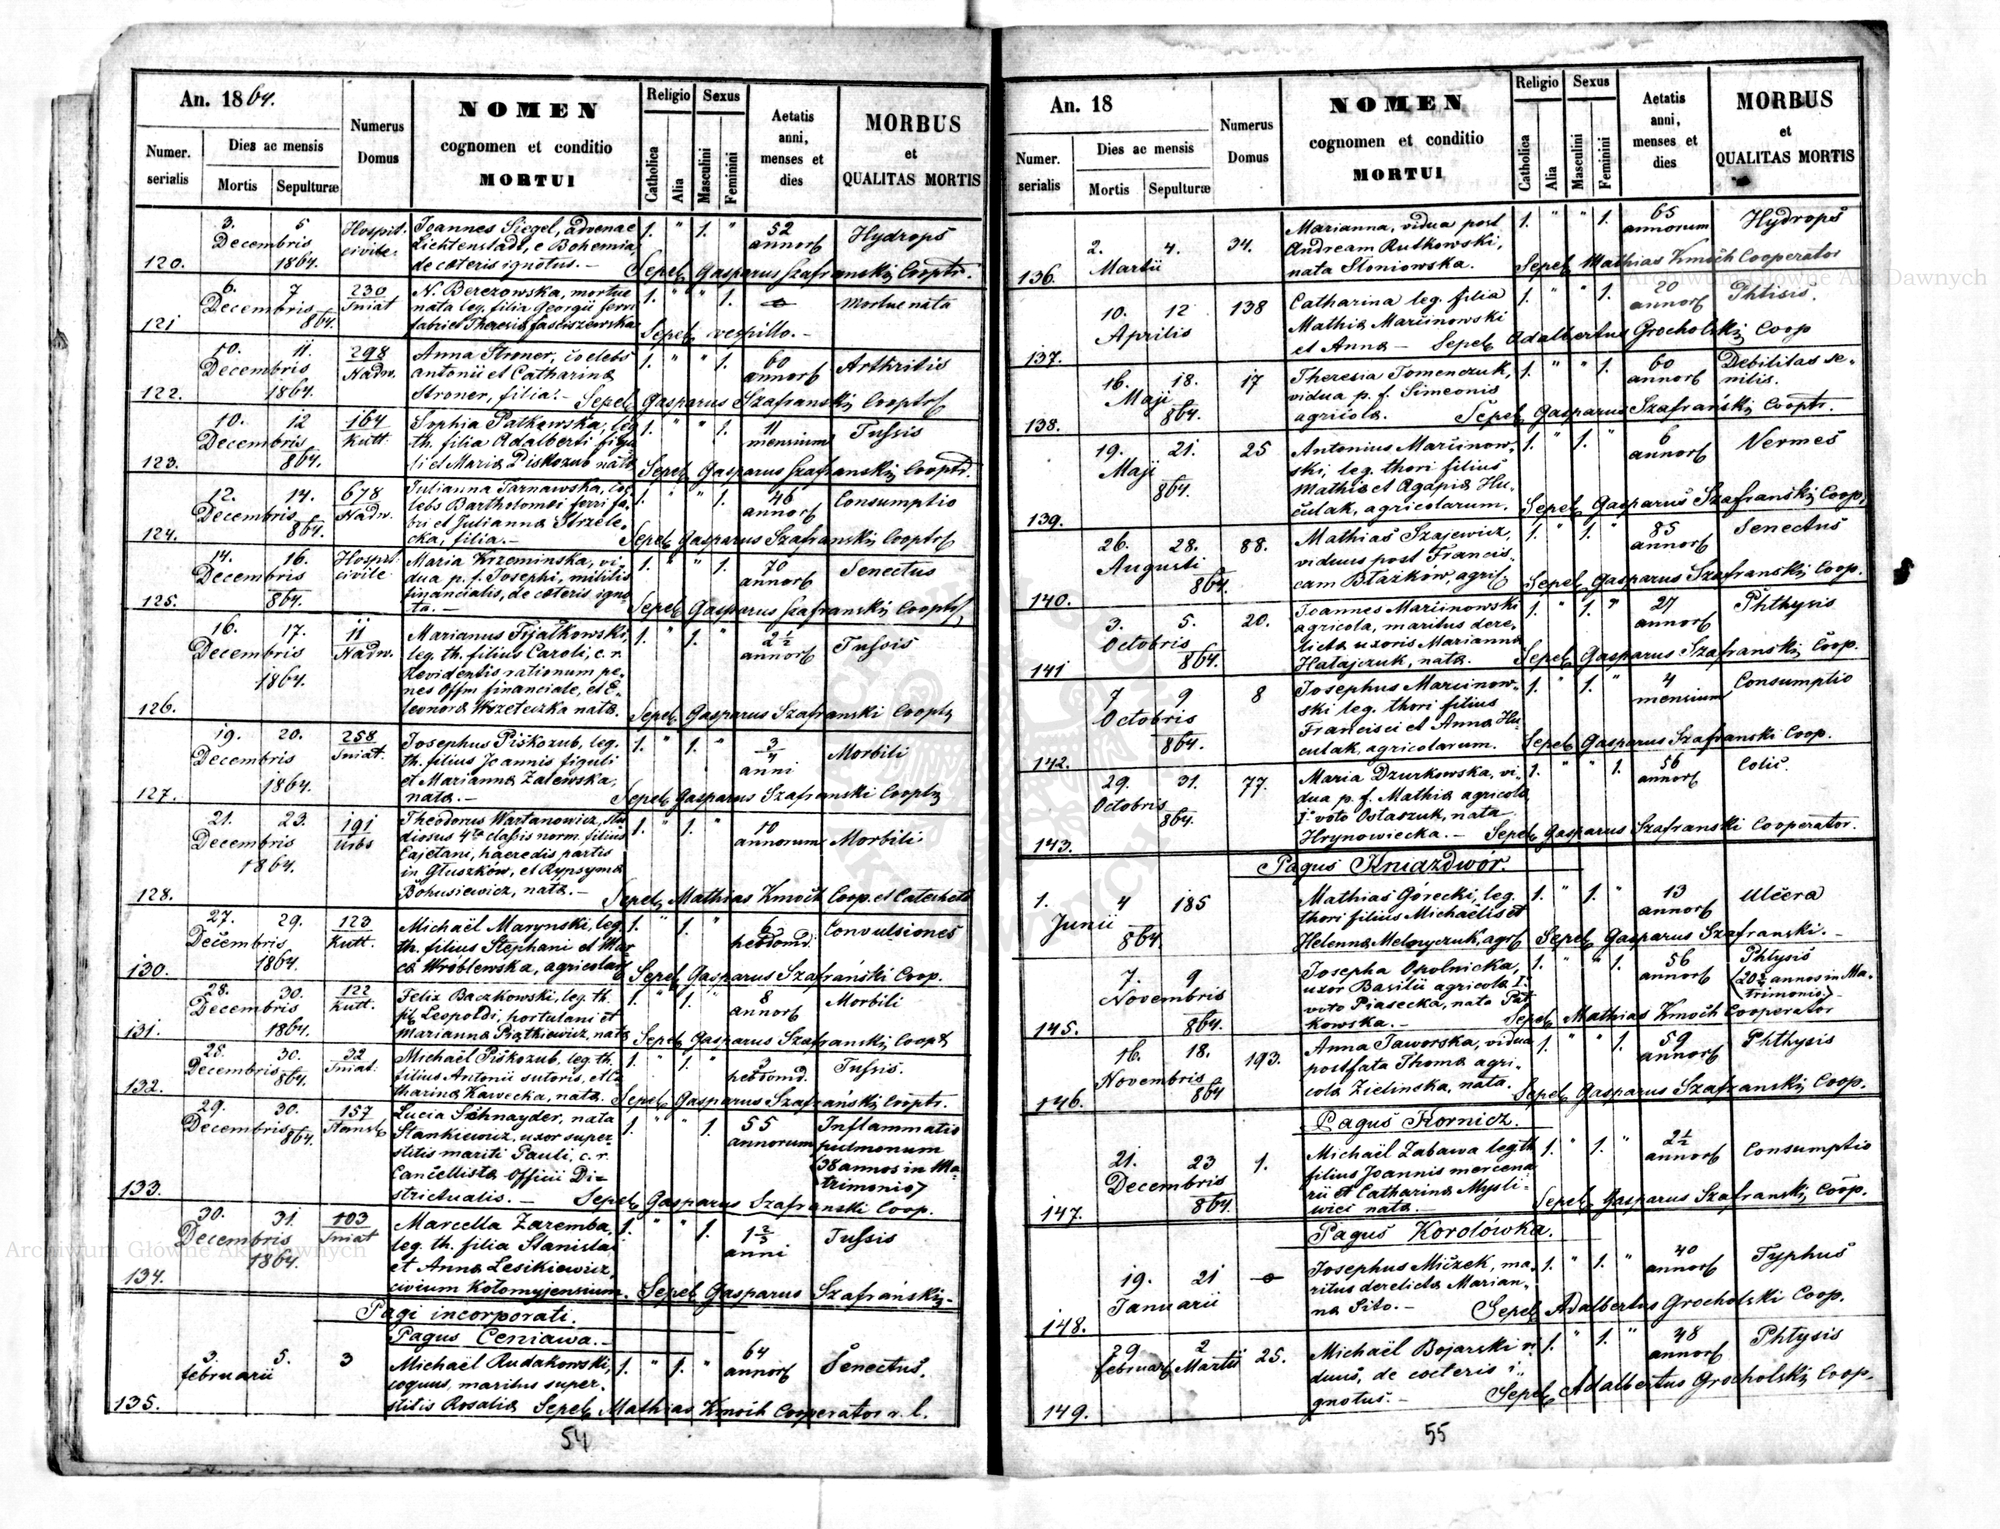 An. 1864.
Numer. serialis
Dies ac mensis
Mortis
Sepulturæ
Numerus Domus
NOMEN
cognomen et conditio
MORTUI
Religio
Catholica
Alia
Sexus
Masculini
Feminini
Aetatis anni, menses et dies
MORBUS
et
QUALITAS MORTIS
120. 3. 5 Decembris 1864. Hospit. civile
Joannes Siegel, advenae
Lichtenstadt, e Bohemia,
de cæteris ignotus. —
1. " 1. " 52 annor. Hydrops
Sepel. Gasparus Szafranski Cooptr.
121 6. 7 Decembris 864. 230 Sniat
N. Berezowska, mortue
nata leg. filia Georgii ferri
fabri et Theresiæ
1. " " 1. Mortue nata
Sepel. vespillo. —
122. 10. 11. Decembris 1864. 298 Nadw.
Anna Stroner, coelebs
Antonii et Catharinæ
Stroner, filia. —
1. " " 1. 60 annor. Arthritis
Sepel. Gasparus Szafranski Cooptr
123. 10. 12 Decembris 864. 164 Kutt.
Sophia Patkowska, leg.
th. filia Adalberti figu
li et Mariæ Piskozub nata
1. " " 1. 11 mensium Tussis
Sepel. Gasparus Szafranski Cooptr.
124. 12. 14. Decembris 864. 678 Nadw.
Julianna Tarnawska, cœ
lebs Bartholomei ferri fa-
bri et Julianna Strzele-
cka, filia. —
1. " " 1. 46 annor. Consumptio
Sepel. Gasparus Szafranski Cooptr
125. 14. 16. Decembris 864. Hospit. civile
Maria Krzeminska, vi-
dua p. f. Josephi, militis
financialis, de cæteris igno-
ta. —
1. " " 1. 70 annor. Senectus
Sepel. Gasparus Szafranski Cooptr
126. 16. 17. Decembris 1864. 11 Nadw.
Marianus Fijałkowski,
leg. th. filius Caroli, c. r.
Revidentis rationum pe-
nes Offm financiale, et E-
leonora nata.
1. " 1. " 2½ annor. Tussis
Sepel. Gasparus Szafranski Cooptr
127. 19. 20. Decembris 1864. 258 Sniat.
Josephus Piskozub, leg.
th. filius Joannis figuli
et Marianna Zalewska,
nata. —
1. " 1. " 3/4 anni Morbili
Sepel. Gasparus Szafranski Cooptr
128. 21. 23. Decembris 1864. 191 Urbs
Theodorus Wartanowicz, Stu
diosus 4tæ classis norm. filius
Cajetani, haeredis partis
in Głuszków, et Rypsyma
Bohusiewicz, nata. —
1. " 1. " 10 annorum Morbili
Sepel. Mathias Kmoch Coop. et Catecheta
130. 27. 29. Decembris 1864. 123 Kutt.
Michaël Marynski, leg.
th. filius Stephani et Mar
cæ Wróblewska, agricolar.
1. " 1. " 6 hebdomd. Convulsiones
Sepel. Gasparus Szafrański Coop.
131. 28. 30. Decembris 1864. 122 Kutt.
Felix Baczkowski, leg. th.
fil. Leopoldi, hortulani et
Marianna Piątkiewicz, nata
1. " 1. " 8 annor. Morbili
Sepel. Gasparus Szafranski Coop
132. 28. 30. Decembris 864. 32 Sniat.
Michaël Piskozub, leg. th.
filius Antonii sutoris, et Ca
tharina Kawecka, nata.
1. " 1. " 3 hebdomd. Tussis.
Sepel. Gasparus Szafrański Cooptr.
133. 29. 30. Decembris 864. 157
Lucia Schnayder, nata
Stankiewicz, uxor super-
stitis mariti Pauli, c. r.
Cancellista Officii Di=
strictualis. —
1. " " 1. 55 annorum Inflammatio
pulmonum
(38 annos in Ma-
trimonio)
Sepel. Gasparus Szafranski Coop.
134. 30. 31. Decembris 1864. 103 Sniat
Marcella Zaremba,
leg. th. filia Stanislai
et Anna Lesikiewicz,
civium Kołomyjensium.
1. " " 1. 1⅔ anni Tussis
Sepel. Gasparus Szafrański —
Pagi incorporati.
Pagus Ceniawa. —
135. 3. 5. februarii 3
Michaël Rudakowski,
coquus, maritus super-
stitis Rosaliæ
1. " 1. " 64 annor. Senectus.
Sepel. Mathias Kmoch Cooperator r. l.
54
An. 18
Numer. serialis
Dies ac mensis
Mortis
Sepulturæ
Numerus Domus
NOMEN
cognomen et conditio
MORTUI
Religio
Catholica
Alia
Sexus
Masculini
Feminini
Aetatis anni, menses et dies
MORBUS
et
QUALITAS MORTIS
136. 2. 4. Martii 34.
Marianna, vidua post
Andream Rutkowski,
nata Słoniowska.
1. " " 1. 65 annorum Hydrops
Sepel. Mathias Kmoch Cooperator
137. 10. 12 Aprilis 138
Catharina leg. filia
Mathiæ Marcinowski
et Anna —
1. " " 1. 20 annor. Phtisis.
Sepel. Adalbertus Grocholski Coop
138. 16. 18. Maji 864. 17
Theresia Tomenczuk,
vidua p. f. Simeonis
agricola.
1. " " 1. 60 annor. Debilitas se-
nilis.
Sepel. Gasparus Szafrański Cooptr.
139. 19. 21. Maji 864. 25
Antonius Marcinow-
ski, leg. thori filius
Mathiæ et Agapia Hu-
culak, agricolarum.
1. " 1. " 6 annor. Vermes
Sepel. Gasparus Szafranski Coop.
140. 26. 28. Augusti 864. 88.
Mathias Szajewicz,
viduus post Francis-
cam Błażkow, agric
1. " 1. 85 annor. Senectus
Sepel. Gasparus Szafranski Coop.
141 3. 5. Octobris 864. 20.
Joannes Marcinowski
agricola, maritus dere-
licta uxoris Marianna
Hatajczuk, nata.
1. " 1. " 27 annor. Phthysis
Sepel. Gasparus Szafranski Coop.
142. 7 9 Octobris 864. 8
Josephus Marcinow-
ski leg. thori filius
Francisci et Anna Hu-
culak, agricolarum.
1. " 1. " 4 mensium Consumptio
Sepel. Gasparus Szafranski Coop.
143. 29. 31. Octobris 864. 77.
Maria Dzurkowska, vi-
dua p. f. Mathiæ agricola,
1º voto Ostaszuk, nata
Hrynowiecka. —
1. " " 1. 56 annor. Colic.
Sepel. Gasparus Szafranski Cooperator.
Pagus Kniazdwór.
1. 4 Junii 864. 185
Mathias Górecki, leg.
thori filius Michaëlis et
Helenna Melnyczuk, agr.
1. " 1. " 13 annor. Ulcera
Sepel. Gasparus Szafranski. —
145. 7. 9 Novembris 864.
Josepha Opolnicka,
uxor Basilii agricola 1º
voto Piasecka, nata Pat
kowska. —
1. " " 1. 56 annor. Phtysis
(20½ annos in Ma-
trimonio) —
Sepel. Mathias Kmoch Cooperator
146. 16. 18. Novembris 864 193.
Anna Jaworska, vidua
post fata Thomæ agri-
cola Zielinska, nata.
1. " " 1. 59 annor. Phthysis
Sepel. Gasparus Szafranski Coop.
Pagus Kornicz.
147. 21. 23 Decembris 864. 1.
Michaël Zabawa leg. th
filius Joannis mercena
rii et Catharina Mysli-
wici nata. —
1. " 1. " 2½ annor. Consumptio
Sepel. Gasparus Szafranski Coop.
Pagus Korolówka.
148. 19. 21 Januarii
Josephus Miczek, ma-
ritus derelicta Marian-
na Sito. —
1. " 1. " 40 annor. Typhus
Sepel. Adalbertus Grocholski Coop.
149. 29 februar. 2 Martii 25.
Michaël Bojarski vi
duus, de cœteris i
gnotus. —
1. " 1. " 48 annor. Phtysis
Sepel. Adalbertus Grocholski Coop.
55
Archiwum Główne Akt Dawnych
Archiwum Główne Akt Dawnych